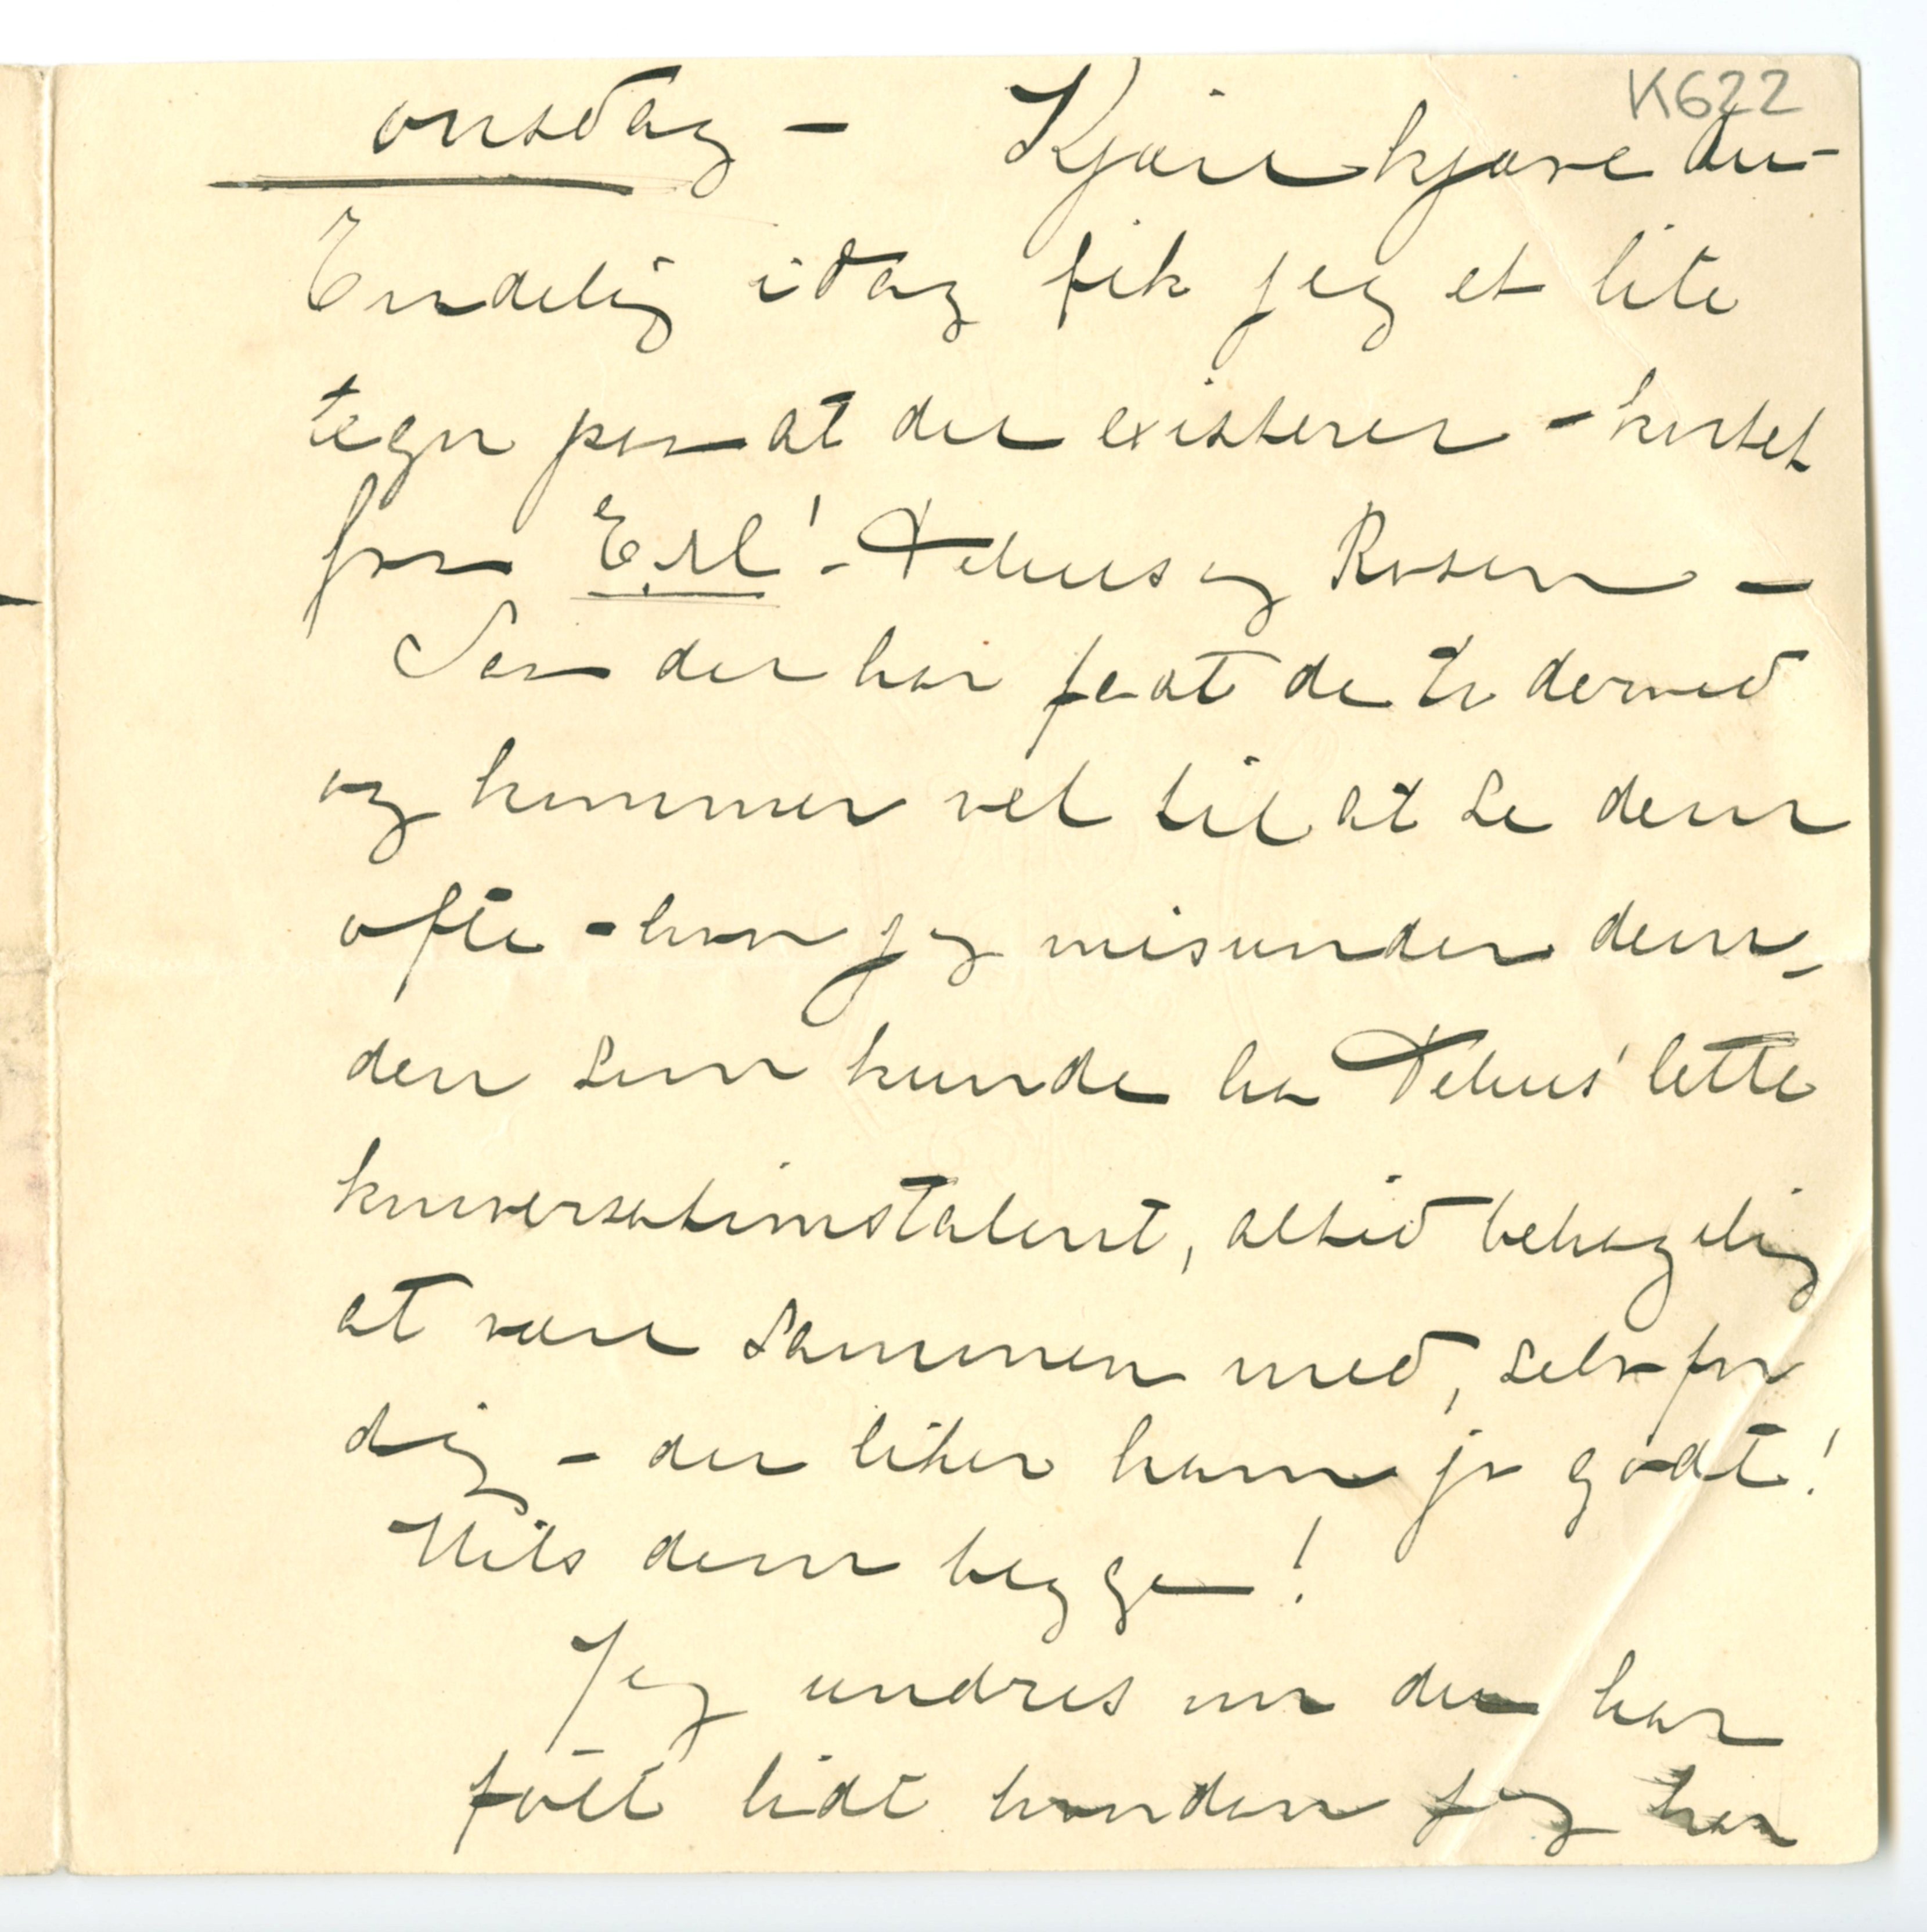 K622
onsdag – Kjære kjære du –
Endelig idag fik jeg et lite
tegn paa at du existerer – kortet
fra – og Rosen –
Saa du har faat de to derned
og kommer vel til at se dem
ofte – hvor jeg misunder dem,
den som kunde ha lette
konversationstalent, altid behagelig
at være sammen med, selv for
dig – du liker ham jo godt!
Hils dem begge!
Jeg undres om du har
følt lidt hvordan jeg har